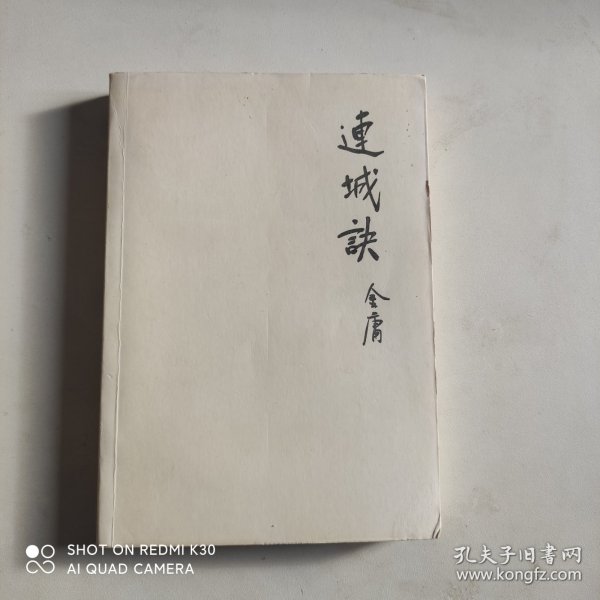 連城訣
金庸
SHOT ON REDMI K30
AI QUAD CAMERA
孔夫子旧书网
www.kongfz.com